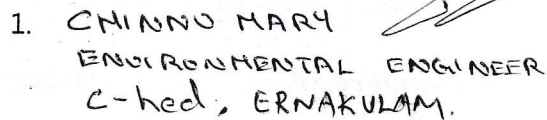 1. CHINNU MARY
ENVIRONMENTAL ENGINEER
C-hed, ERNAKULAM.